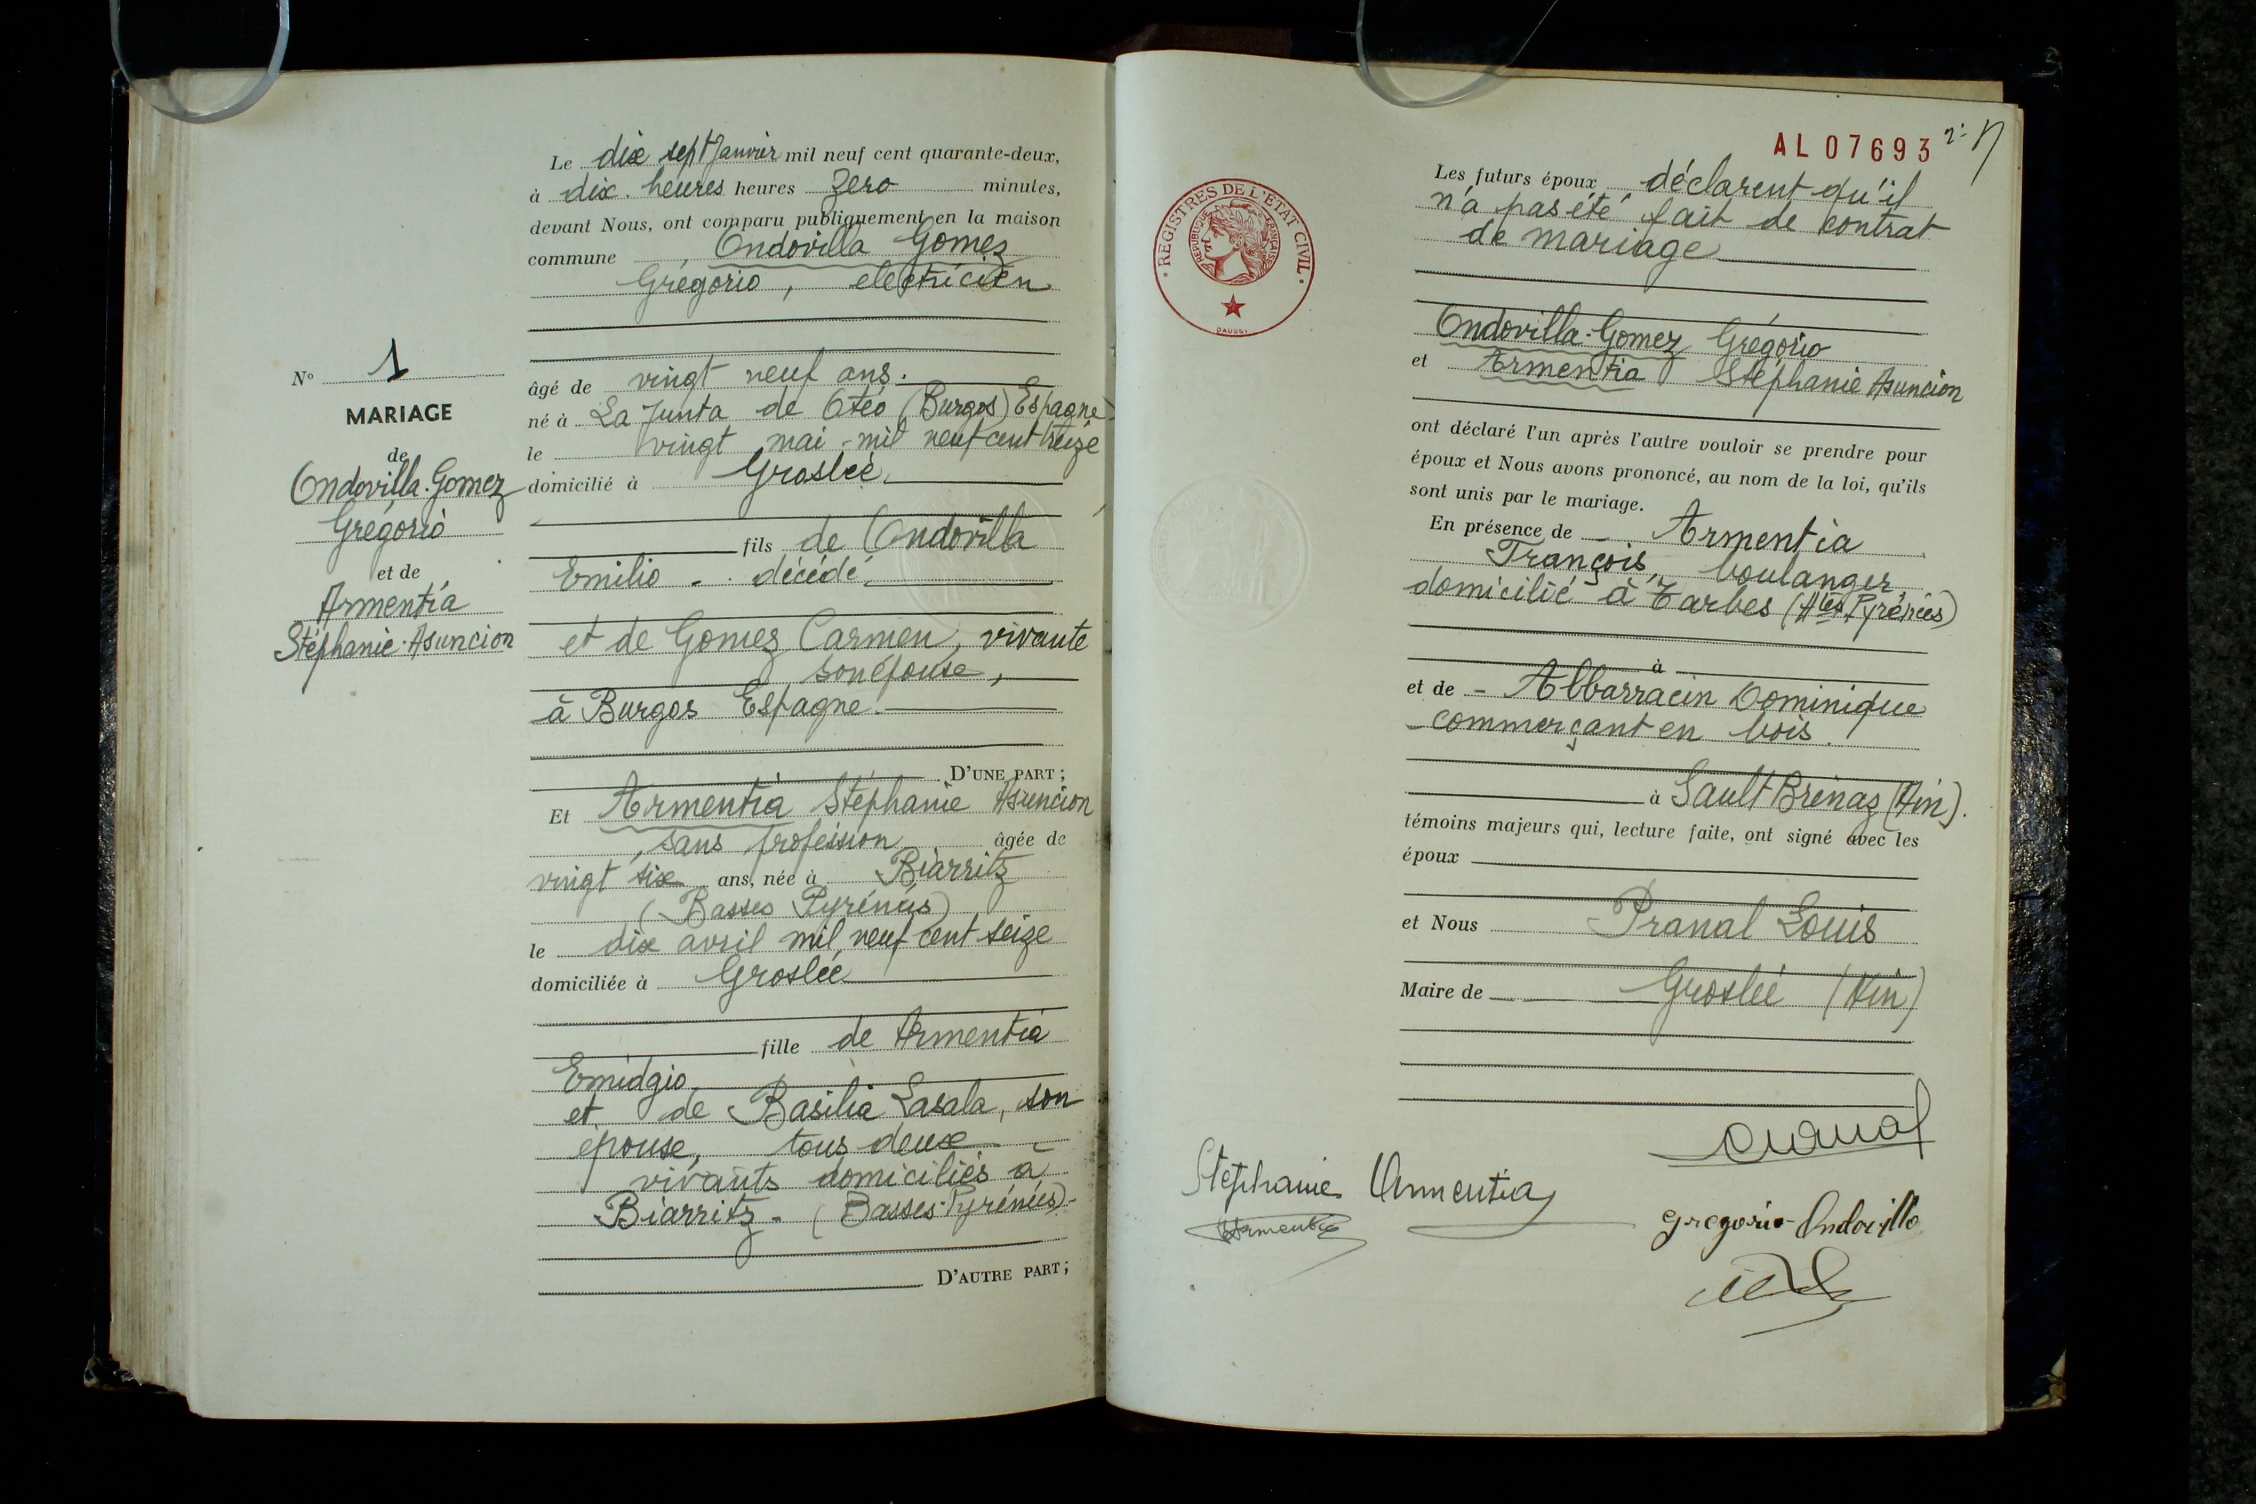 Le dix sept Janvier mil neuf cent quarante-deux,
à dix heures heures Zero minutes,
devant Nous, ont comparu publiquement en la maison
commune , Ondovilla Gomez
Grégorio, electricien
Nº 1
MARIAGE
de
Ondovilla-Gomez
Grégorio
et de
Armentia
Stéphanie-Asuncion
âgé de vingt neuf ans.
né à La Junta de Otéo (Burgos) Espagne
le vingt mai mil neuf cent treize
domicilié à Groslée
fils de Ondovilla
Emilio - décédé
et de Gomez Carmen, vivante
son épouse,
à Burgos Espagne.
D'UNE PART;
Et Armentia Stéphanie Asuncion
, sans profession âgée de
vingt six ans, née à Biarritz
(Basses Pyrénées)
le dix avril mil neuf cent seize
domiciliée à Groslée
fille de Armentia
Emidgio
et de Basilia Lasala, son
épouse, tous deux
vivants domiciliés à
Biarritz - (Basses-Pyrénées)-
D'AUTRE PART;
AL 07693
REGISTRES DE L'ÉTAT CIVIL
RÉPUBLIQUE FRANÇAISE
DAUSSY
Les futurs époux déclarent qu'il
n'a pas été fait de contrat
de mariage
Ondovilla-Gomez Grégorio
et Armentia Stéphanie Asuncion
ont déclaré l'un après l'autre vouloir se prendre pour
époux et Nous avons prononcé, au nom de la loi, qu'ils
sont unis par le mariage.
En présence de - Armentia
François, boulanger
domicilié à Tarbes (Htes Pyrénées)
à
et de - Albarracin Dominique
commerçant en bois.
à Sault Brénaz (Ain).
témoins majeurs qui, lecture faite, ont signé avec les
époux
et Nous Pranal Louis
Maire de Groslée (Ain)
Pranal
Stéphanie Armentia
Armentia
Gregorio Ondovilla